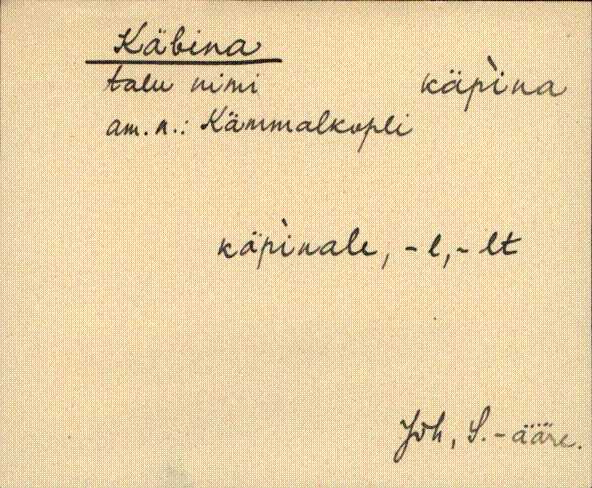 Käbina
talu nimi käpìna
am. n.: Kämmalkopli
käpìnale, -l, -lt
Jõh, S.-ääre.